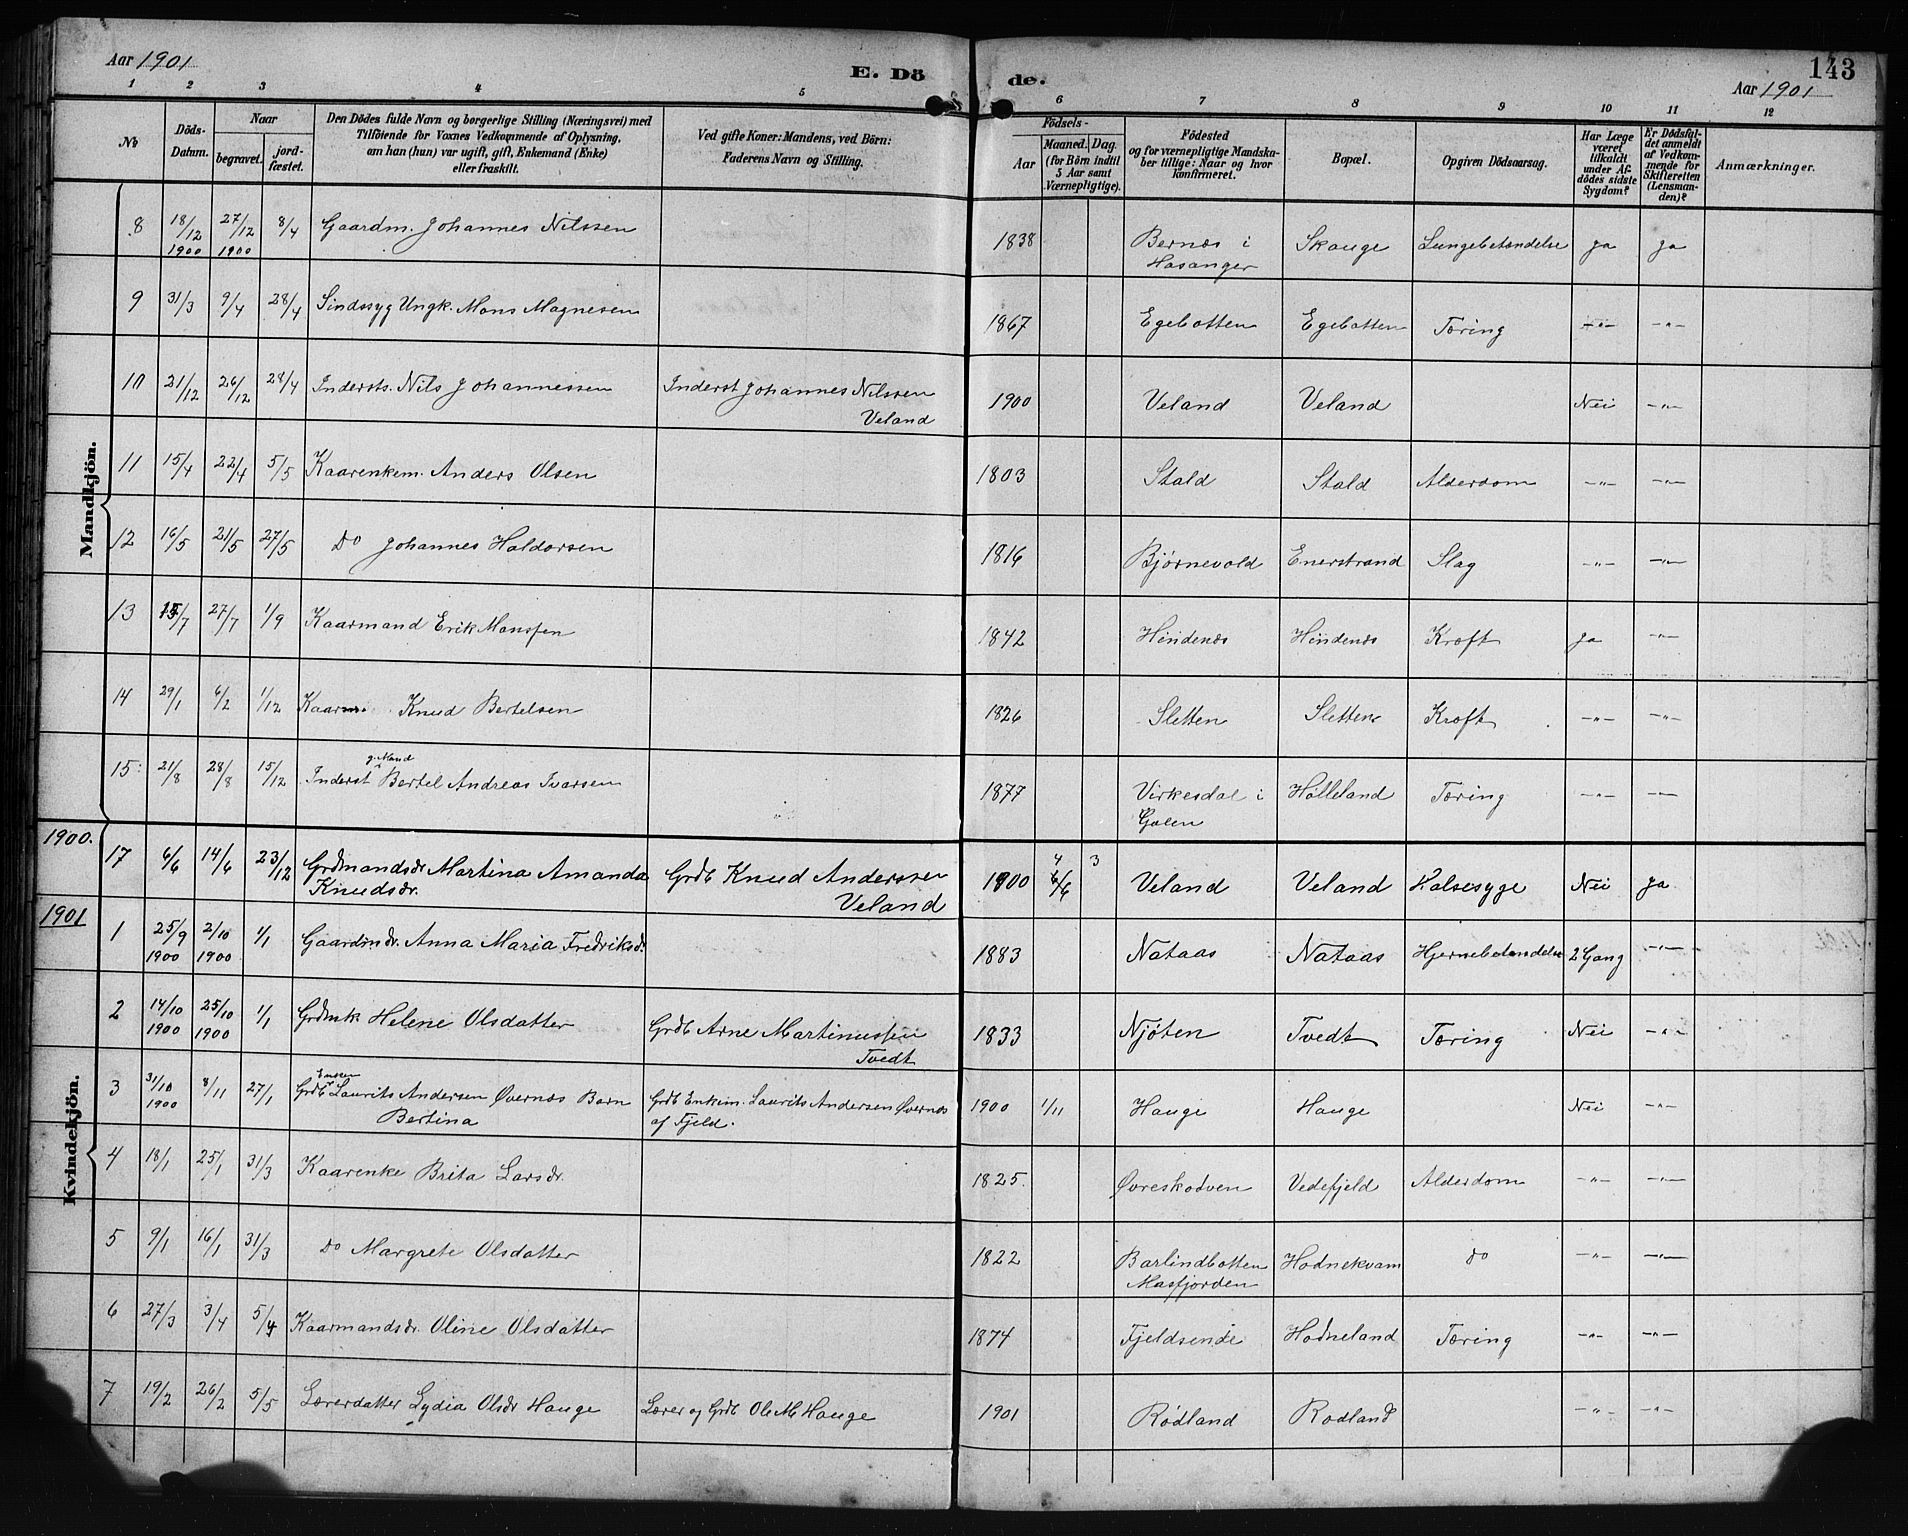 Aar 1901
E. Dö
de.
143
Aar 1901
1 2 3 4 5 6 7 8 9 10 11 12
No
Döds-Datum.
Naar
begravet.
jord-fæstet.
Den Dödes fulde Navn og borgerlige Stilling (Næringsvei) med
Tilföiende for Voxnes Vedkommende af Oplysning,
om han (hun) var ugift, gift, Enkemand (Enke)
eller fraskilt.
Ved gifte Koner: Mandens, ved Börn:
Faderens Navn og Stilling.
Födsels-
Aar
Maaned. Dag.
(for Börn indtil
5 Aar samt
Værnepligtige).
Födested
og for værnepligtige Mandska-
ber tillige: Naar og hvor
konfirmeret.
Bopæl.
Opgiven Dödsaarsag.
Har Læge
været
tilkaldt
under Af-
dödes sidste
Sygdom?
Er Dödsfal-
det anmeldt
af Vedkom-
mende for
Skifteretten
(Lensman-
den)?
Anmærkninger.
Mandkjön.
8 18/12 1900 27/12 1900 8/4 Gaardm. Johannes Nilssen 1838 Bernæs i Hosanger Skauge Lungebetændelse ja ja
9 31/3 9/4 28/4 Sindssyg Ungk. Mons Magnesen 1867 Egebotten Egebotten Tæring -"- -"-
10 21/12 26/12 28/4 Indersts. Nils Johannessen Inderst Johannes Nilssen Veland 1900 Veland Veland Nei -"-
11 15/4 22/4 5/5 Kaarenkem. Anders Olsen 1803 Stald Stald Alderdom -"- -"-
12 16/5 21/5 27/5 Do Johannes Haldorsen 1816 Bjørnevold Enerstrand Slag -"- -"-
13 15/7 27/7 1/9 Kaarmand Erik Monssen 1842 Hindenæs Hindenæs Kræft ja -"-
14 29/1 6/2 1/12 Kaarm. Knud Bertelsen 1826 Sletten Sletten Kræft -"- -"-
15 21/8 28/8 15/12 Inderst g. Mand Bertel Andreas Ivarsen 1877 Virkesdal i Gulen Hølleland Tæring -"- -"-
1900.
17 6/6 14/6 23/12 Grdmandsdr Martina Amanda Knudsdr. Grdb Knud Anderssen Veland 1900 4 6/6 3 Veland Veland Halsesyge Nei ja
1901
Kvindekjön.
1 25/9 1900 2/10 1900 1/1 Gaardmdr. Anna Maria Fredriksdr 1883 Nataas Nataas Hjernebetændelse 2 Gang -"-
2 14/10 1900 25/10 1900 1/1 Grdmk Helene Olsdatter Grdb Arne Martinussen Tvedt 1833 Njøten Tvedt Tæring Nei -"-
3 31/10 1900 8/11 27/1 Grdb Laurits Andersen Øvernæs Barn Bertina Grdb Enkem. Laurits Andersen Øvernæs af Fjeld. 1900 1/11 Hauge Hauge Nei -"-
4 18/1 25/1 31/3 Kaarenke Brita Larsdr. 1825. Øvreskodven Vedefjeld Alderdom -"- -"-
5 9/1 16/1 31/3 Do Margrete Olsdatter 1822 Barlindbotten Masfjorden Hodnekvam do -"- -"-
6 27/3 3/4 5/4 Kaarmandsdr. Oline Olsdatter 1874 Fjeldsende Hodneland Tæring -"- -"-
7 19/2 26/2 5/5 Lærerdatter Lydia Olsdr Hauge Lærer og Grdb Ole M. Hauge 1901 Rødland Rødland -"- -"-